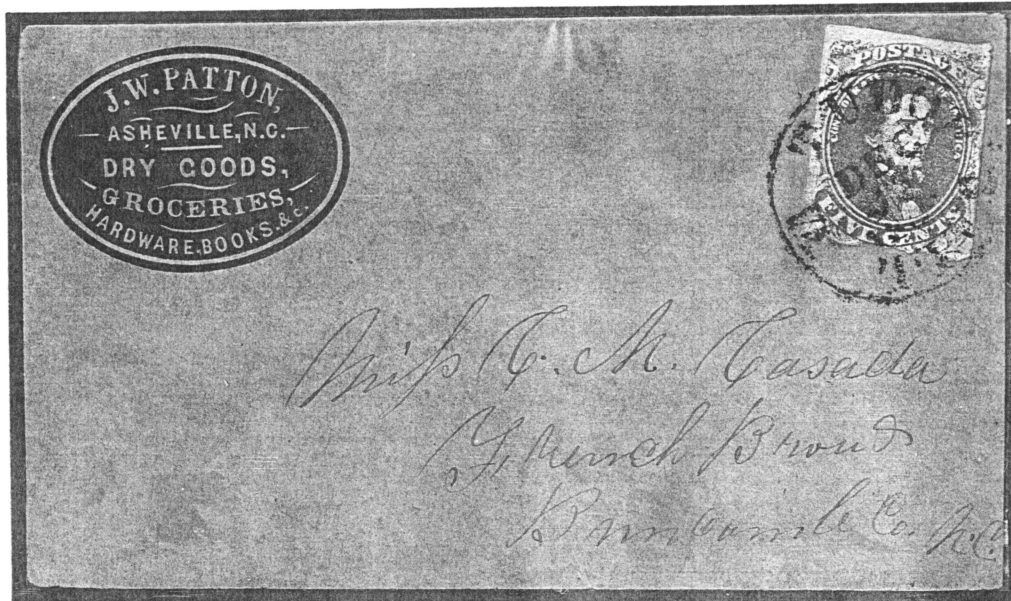 J.W. PATTON,
ASHEVILLE, N.C.
DRY GOODS,
GROCERIES,
HARDWARE, BOOKS, &c.
POSTAGE
FIVE CENTS
DEC
Miss C. M. Casada
French Broad
Buncombe Co. N.C.